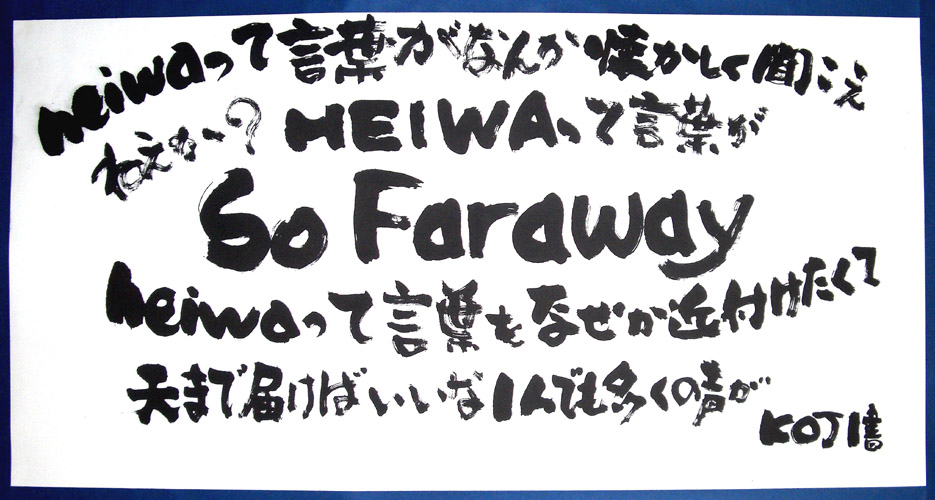 heiwaって言葉がなんか懐かしく聞こえ
ねえか〜？HEIWAって言葉が
So Faraway
heiwaって言葉をなぜか近付けたくて
天まで届けばいいな1人でも多くの声が
KOJI書